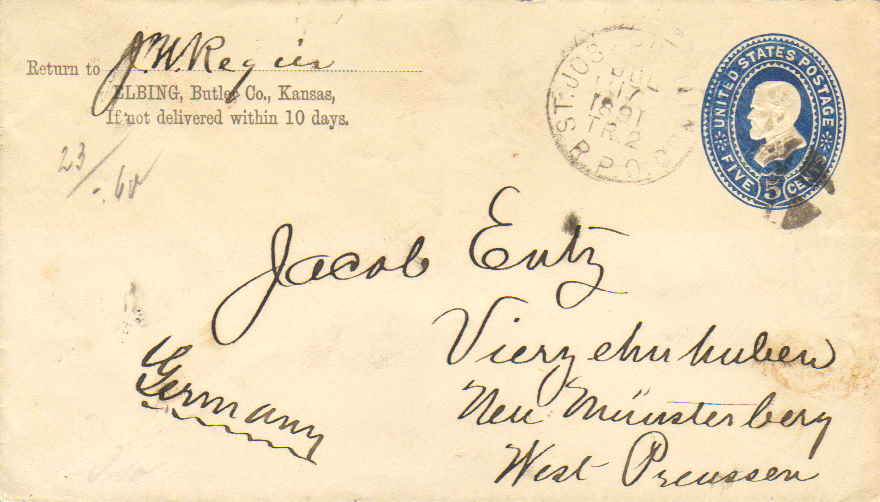 Return to J. W. Regier
ELBING, Butler Co., Kansas,
If not delivered within 10 days.
23/
. 60
ST. JOS
JUL
17
1891
TR 2
R.P.O.
UNITED STATES POSTAGE
FIVE 5 CENTS
Jacob Entz
Vierzehnhuben
Neu Münsterberg
West Preussen
Germany